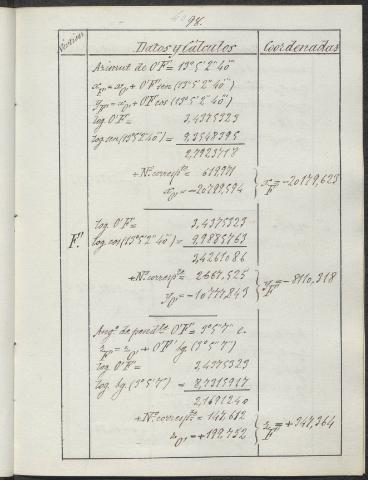 98.
Station Datos y Cálculos Coordenadas
Azimut de O'F' = 13° 5' 2" 40'''
x F' = x O' + O'F' sen (13° 5' 2" 40''')
y F' = x O' + O'F' cos (13° 5' 2" 40''')
log. O'F' = 3,4375323
log. sen (13° 5' 2" 40''') = 9,3548395
2,7923718
+ Nº corresp.te = 619,971
x O' = -20799,594
x F' = -20179,623
F'
log. O'F' = 3,4375323
log. cos (13° 5' 2" 40''') = 9,9885763
3,4261086
+ Nº corresp.te = 2667,525
y O' = -10777,843
y F' = -8110,318
Ang.º de pend.te O'F' = 3° 5' 7" e.
z F' = z O' + O'F' tg (3° 5' 7")
log. O'F' = 3,4375323
log. tg (3° 5' 7") = 8,7315917
2,1691240
+ Nº corresp.te = 147,612
z O' = +199,752
z F' = +347,364